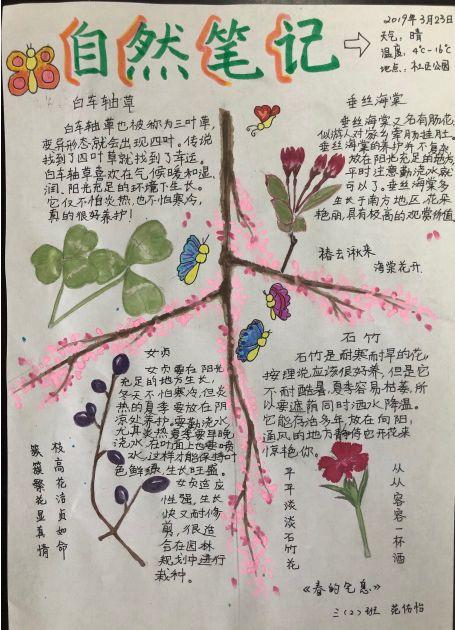 自然笔记
2019年3月23日
天气：晴
温度：4℃-16℃
地点：社区公园
白车轴草
白车轴草也被称为三叶草，
变异形态就会出现四叶。传说
找到了四叶草就找到了幸运。
白车轴草喜欢在气候暖和湿
润、阳光充足的环境下生长。
它仅不怕炎热，也不怕寒冷，
真的很好养护！
垂丝海棠
垂丝海棠又名有肠花，
似游人对家乡牵肠挂肚。
垂丝海棠的养护并不复杂，
放在阳光充足的地方
平时注意勤浇水就
可以了。垂丝海棠多
生长于南方地区，花朵
艳丽，具有极高的观赏价值
椿去湫来
海棠花开
女贞
女贞要在阳光
充足的地方生长，
冬天不怕寒冷，但炎
热的夏季要放在阴
凉处养护。要勤浇水，
尤其炎热夏季要早晚
浇水，在叶面上也要喷
水，这样才能保持叶
色鲜绿，生长旺盛。
女贞适应
性强，生长
快又耐修
剪，很适
合在园林
规划中进行
栽种。
枝高花洁贞如命
簇簇繁花显真情
石竹
石竹是耐寒耐旱的花。
按理说应该很好养，但是它
不耐酷暑，夏季容易枯萎，所
以要遮荫同时洒水降温。
它能存活多年，放在向阳、
通风的地方静待它开花来
惊艳你。
平平淡淡石竹花
从从容容一杯酒
《春的气息》
三（2）班 范佑怡